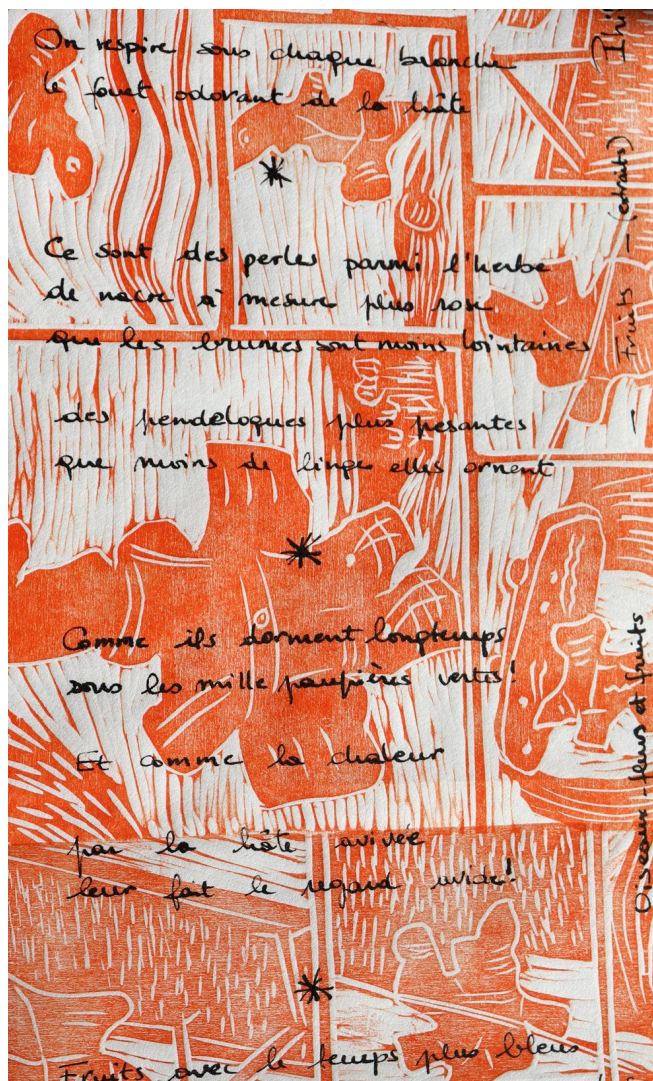 On respire sous chaque branche
le fouet odorant de la hâte
Ce sont des perles parmi l'herbe
de nacre à mesure plus rose
que les brumes sont moins lointaines
des pendeloques plus pesantes
que moins de linge elles ornent
Comme ils dorment longtemps
sous les mille paupières vertes!
Et comme la chaleur
par la hâte avivée
leur fait le regard avide!
Fruits avec le temps plus bleus
Fruits — (extraits)
Oiseaux - fleurs et fruits